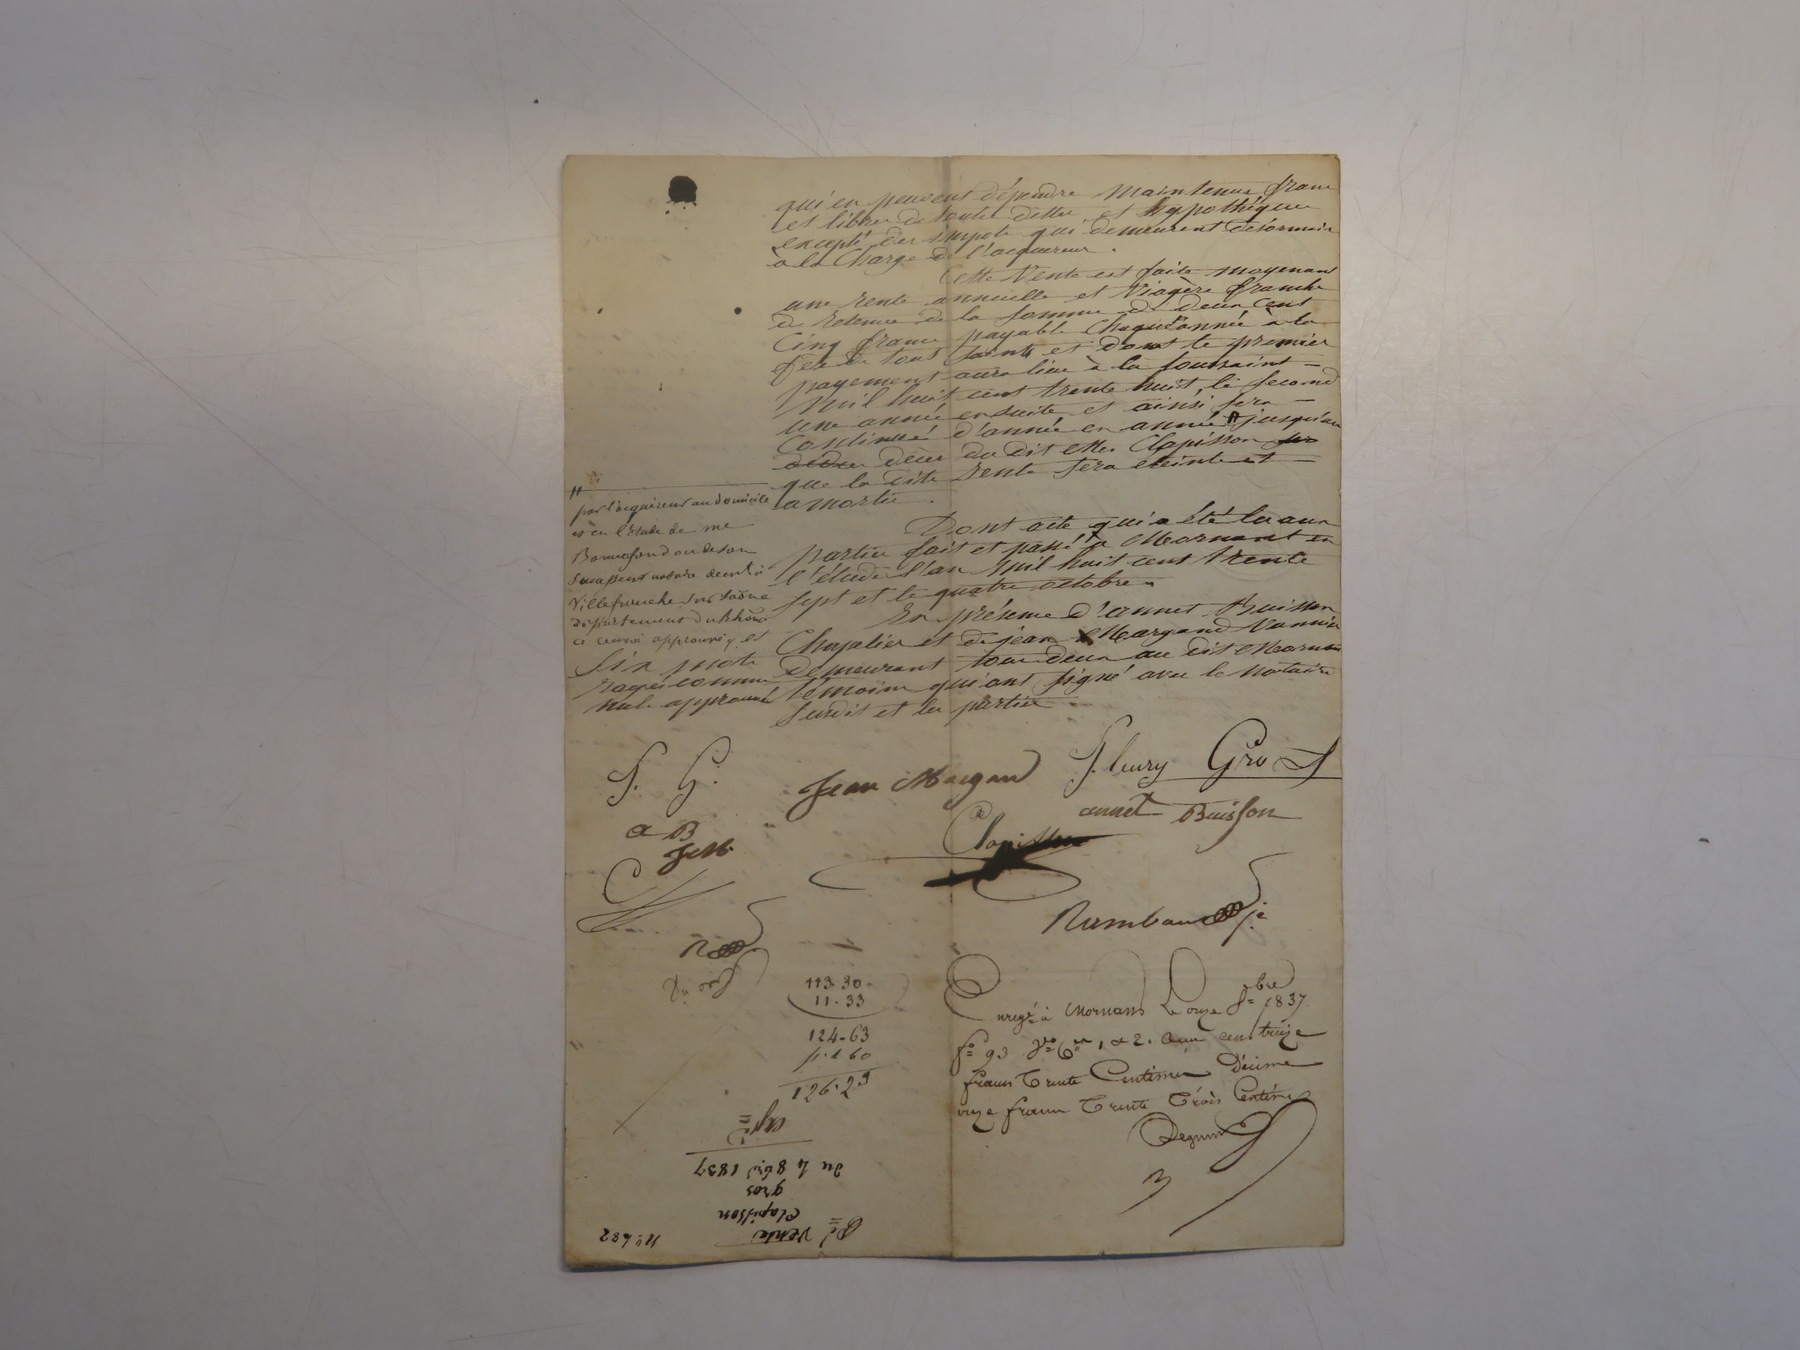 qui en peuvent dépendre maintenue franc
et libre de toute dette et hypothéque
excepté des impots qui demeurent désormais
à la Charge de l'acquereur.
Cette Vente est faite moyenant
une rente annuelle et Viagère franche
de retenue de la somme de deux cent
Cinq francs payable chaque année à la
fete de tout Saints et dont le premier
payement aura lieu à la toussaint —
Mil huit cent trente huit, le second
une année ensuite et ainsi sera —
Continué d'année en année # jusqu'au
décès du dit Mr Clapisson
que la dite rente sera éteinte et —
amortie.
Dont acte qui a été lu aux
parties fait et passé à Mornant en
l'étude l'an Mil huit cent trente
sept et le quatre octobre.
En présence d'annet Buisson
Chapelier et de jean Margand Vannier
Demeurant tous deux au dit Mornant
témoins qui ont signé avec le notaire
susdit et les parties
#
par l'acquéreur au domicile
et en l'étude de me
Bonnefond ou de son
successeur notaire
Villefranche sur Saône
département du Rhône
ce renvoi approuvé et
Six mots
rayés comme
nuls approuvé
f. G.
Jean Margand
fleury Gros
a B
J M
annet Buisson
Clapisson
R
Rambaud
113-30-
11-33
124-63
1-60
126-23
Enregé à Mornant Le onze 8bre 1837.
fo 93 Vo Cses 1 & 2. Reçu cent treize
francs Trente Centimes Décime
onze francs Trente Trois Centimes
Expon
du 4 8bre 1837
gros
Clapisson
Vente
No 482